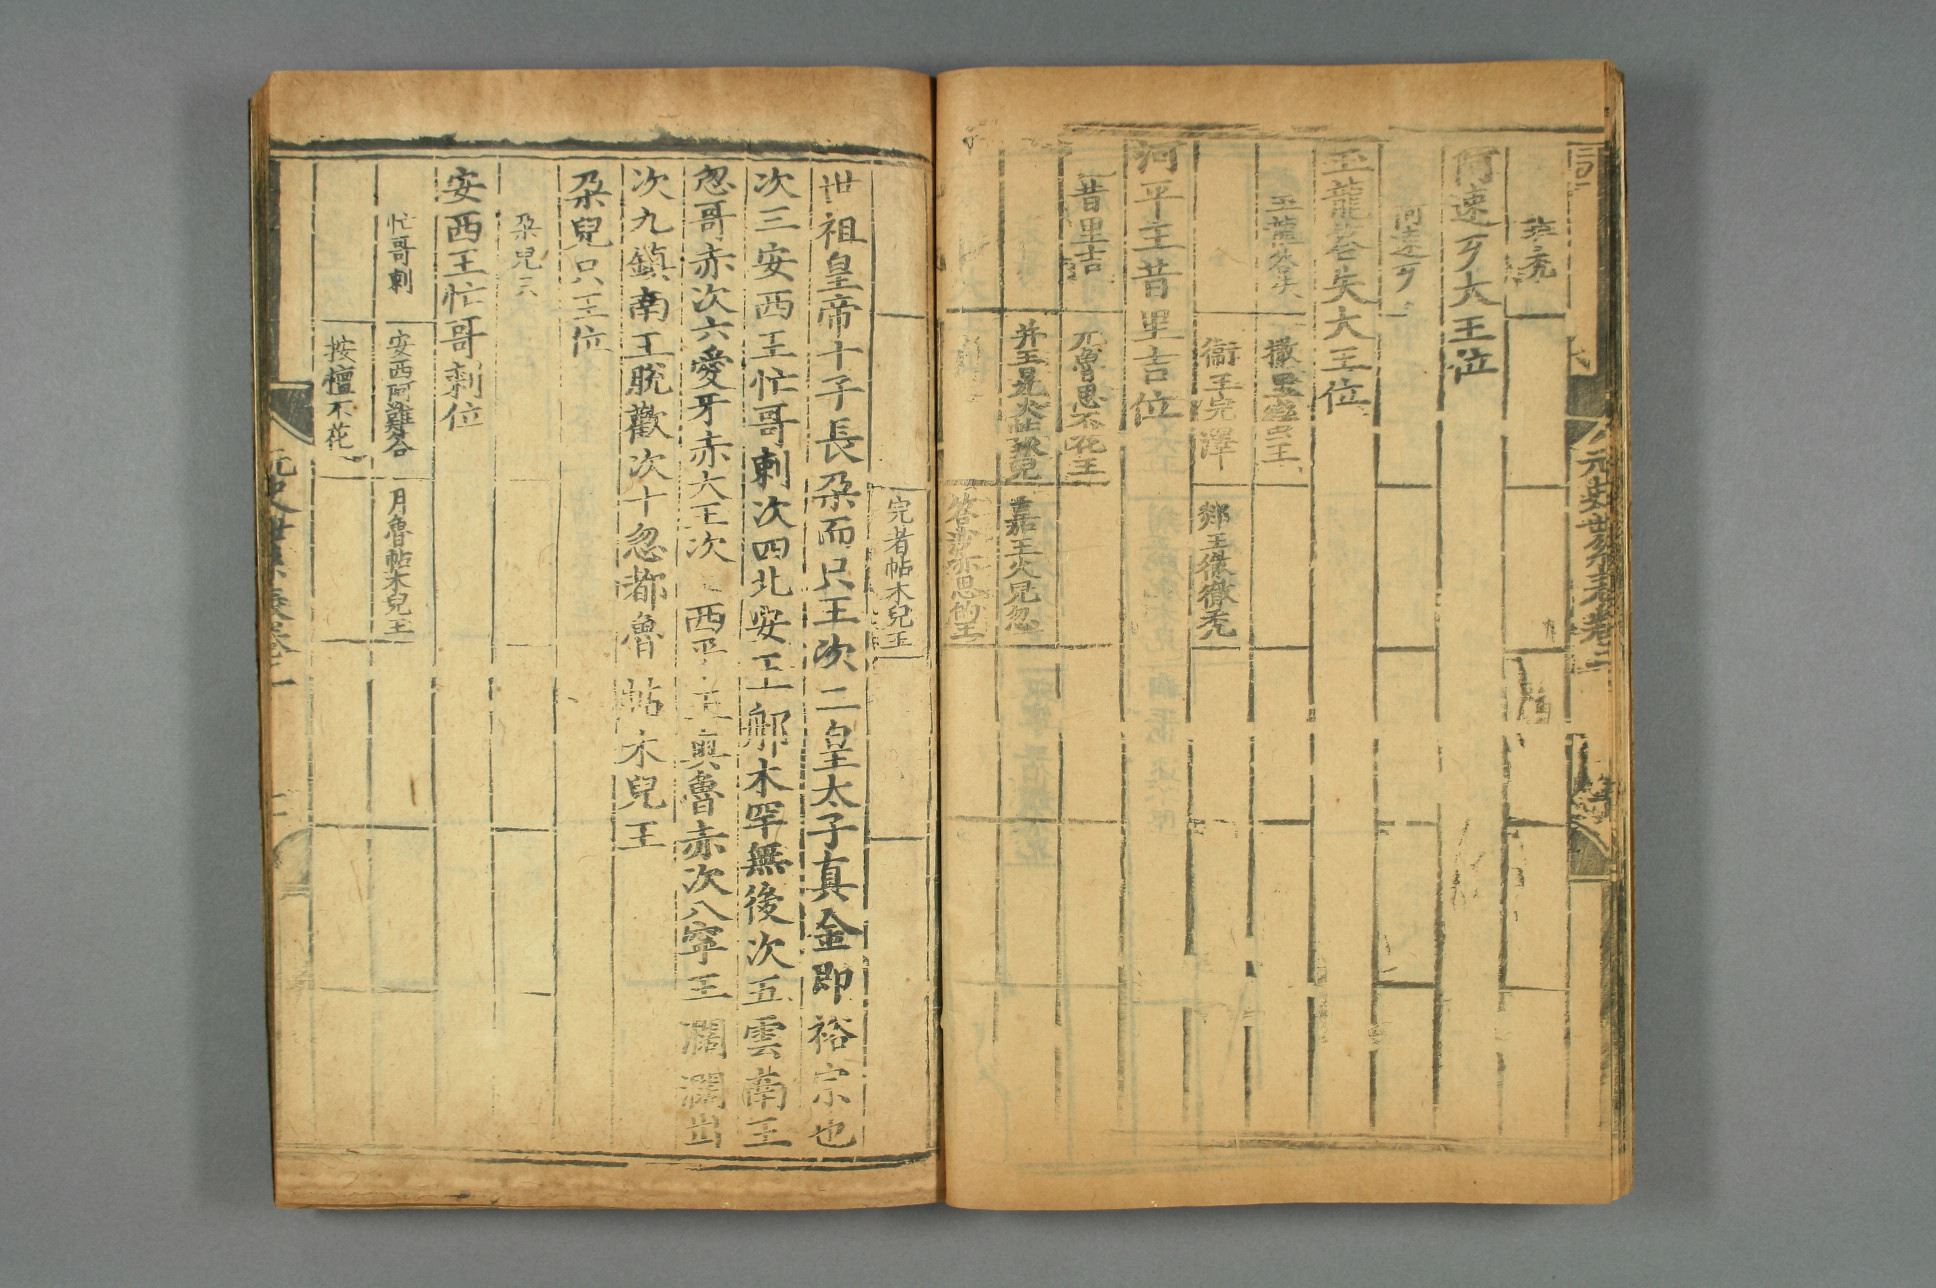 阿速歹大王位
阿速歹
玉龍荅失大王位
玉龍荅失
撒里蛮王
衞王完澤
郯王徹徹禿
河平王昔里吉位
昔里吉
兀魯思不花王
并王晃火帖木兒
嘉王火兒忽
完者帖木兒王
世祖皇帝十子長朶而只王次二皇太子真金即裕宗也
次三安西王忙哥剌次四北安王那木罕無後次五雲南王
忽哥赤次六愛牙赤大王次七西平王奥魯赤次八寧王濶濶出
次九鎮南王脫歡次十忽都魯帖木兒王
朶兒只王位
朶兒只
安西王忙哥剌位
忙哥剌
安西阿難荅
月魯帖木兒王
按檀不花